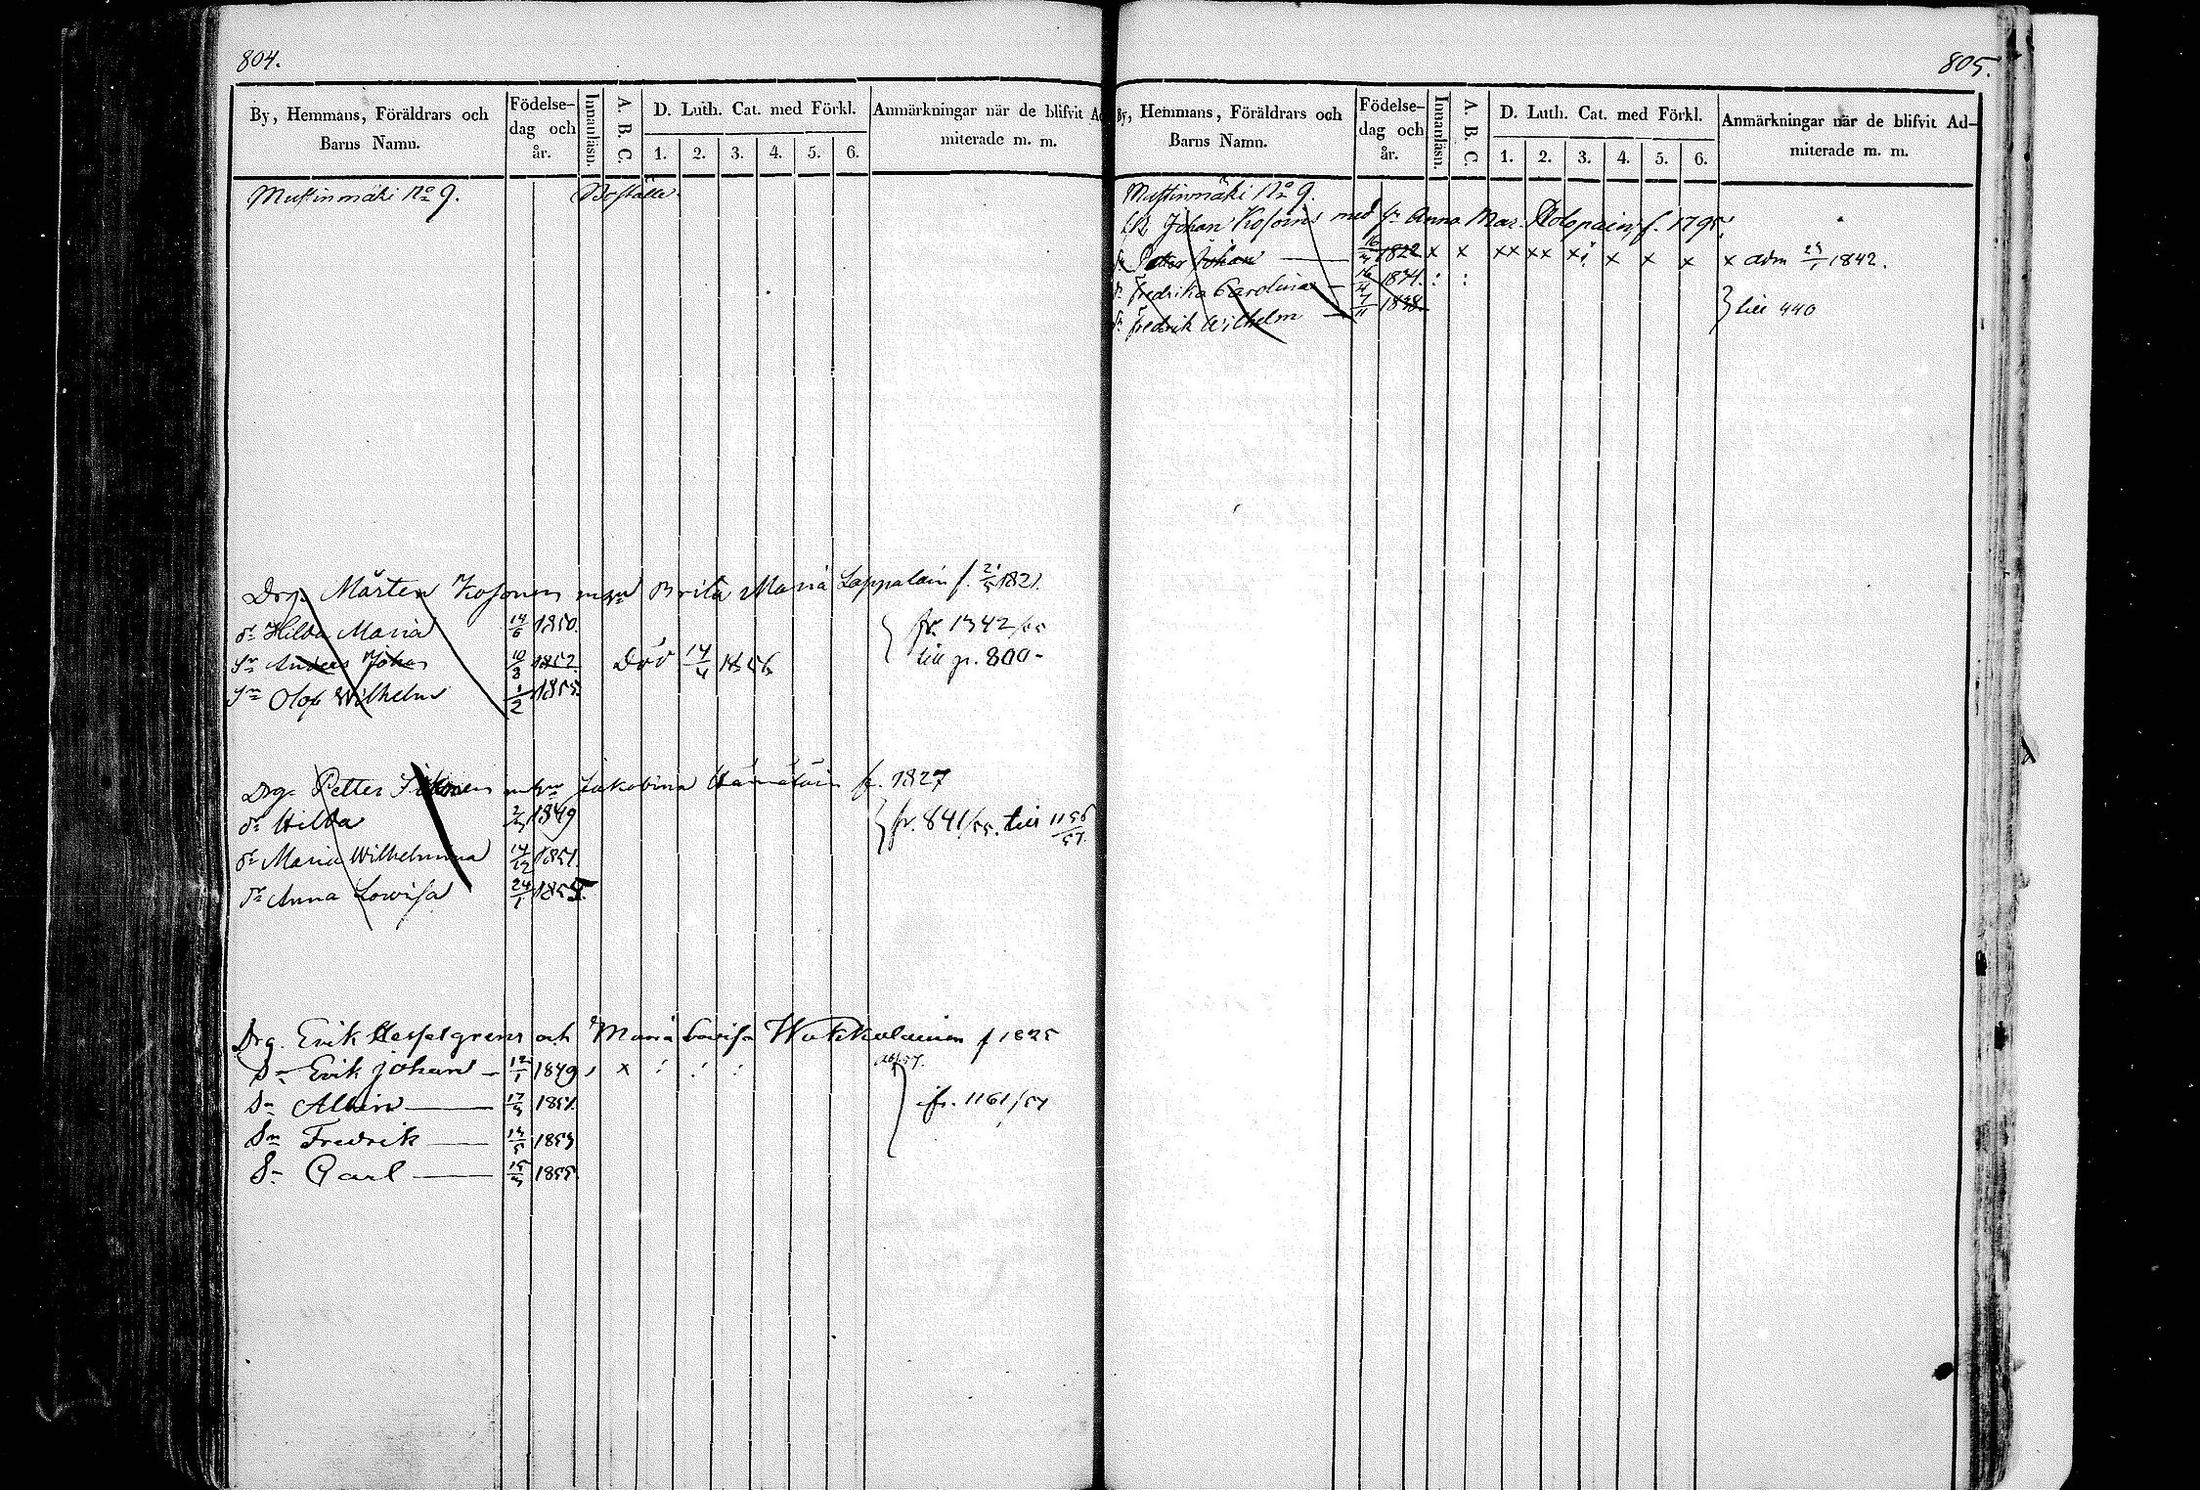 804.
By, Hemmans, Föräldrars och Barns Namn.
Födelse-dag och år.
Innanläsn.
A. B. C.
D. Luth. Cat. med Förkl.
1. 2. 3. 4. 5. 6.
Anmärkningar när de blifvit Admiterade m. m.
Mustinmäki No 9. Boställe.
Drg. Mårten Kosonen m hu Brita Maria Lappalain f. 21/5 1821.
dr Hilda Maria 14/6 1850. fr. 1342/55
Sn Anders Johan 10/8 1852. Död 14/4 1856 till p. 800-
Sn Olof Wilhelm 1/2 1855.
Drg. Petter m hu Jakobina Hämäläin f. 1827
dr Hilda 1849 fr. 841/55. till 1156/57.
dr Maria Wilhelmina 14/12 1851.
dr Anna Lowisa 24/1 1855.
Drg. Erik Hesselgren och Maria Lovisa f 1825
Sn Erik Johan 12/1 1849 x
Sn Albin 17/3 1851.
fr. 1161/57
Sn Fredrik 1853
Sn Carl 15/3 1855.
805.
By, Hemmans, Föräldrars och Barns Namn.
Födelse-dag och år.
Innanläsn.
A. B. C.
D. Luth. Cat. med Förkl.
1. 2. 3. 4. 5. 6.
Anmärkningar när de blifvit Admiterade m. m.
Mustinmäki No 9.
Johan Kosoin med hu Anna Mar. Holopain, f. 1795.
Sn Petter Johan 1822 x x xx xx x x x x x adm 1842.
dr Fredrika Carolina 16/4 1834. : :
Sn Fredrik Wilhelm 7/11 1838 till 440